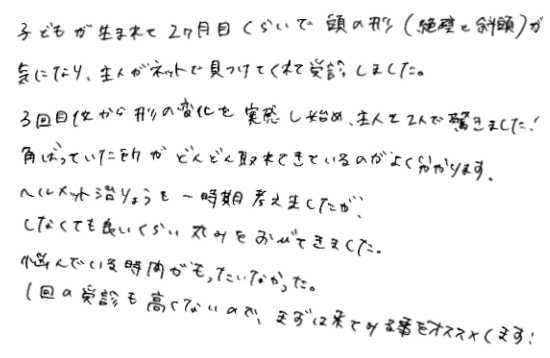 子どもが生まれて2ヶ月目くらいで頭の形(絶壁と斜頭)が
気になり、主人がネットで見つけてくれて受診しました。
3回目位から形の変化を実感し始め、主人と2人で驚きました!
角ばっていた所がどんどん取れてきているのがよく分かります。
ヘルメット治りょうを一時期考えましたが、
しなくても良いくらい丸みをおびてきました。
悩んでいる時間がもったいなかった。
1回の受診も高くないので、まずは来てみる事をオススメします!